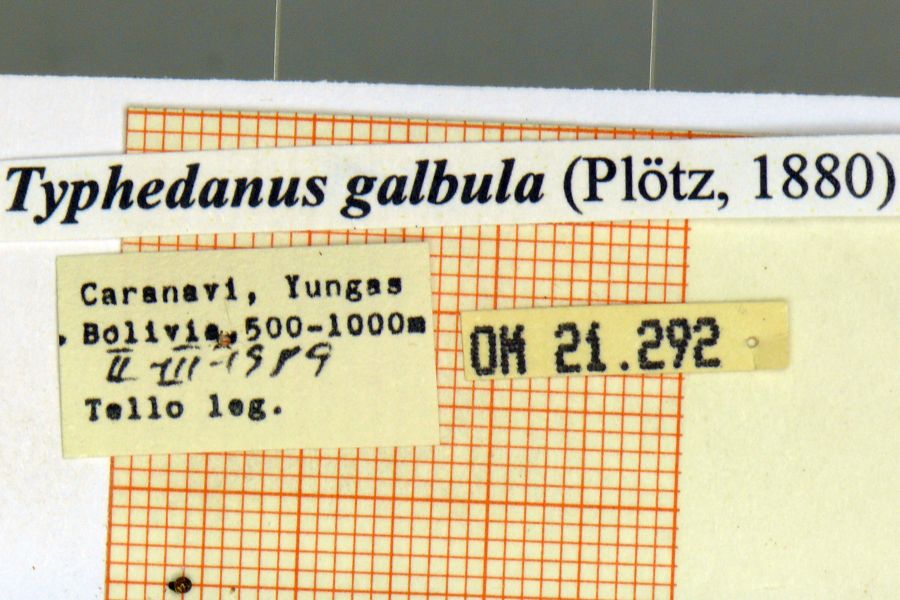 Typhedanus galbula (Plötz, 1880)
Caranavi, Yungas
Bolivia, 500-1000m
II-III-1989
Tello leg.
OM 21.292